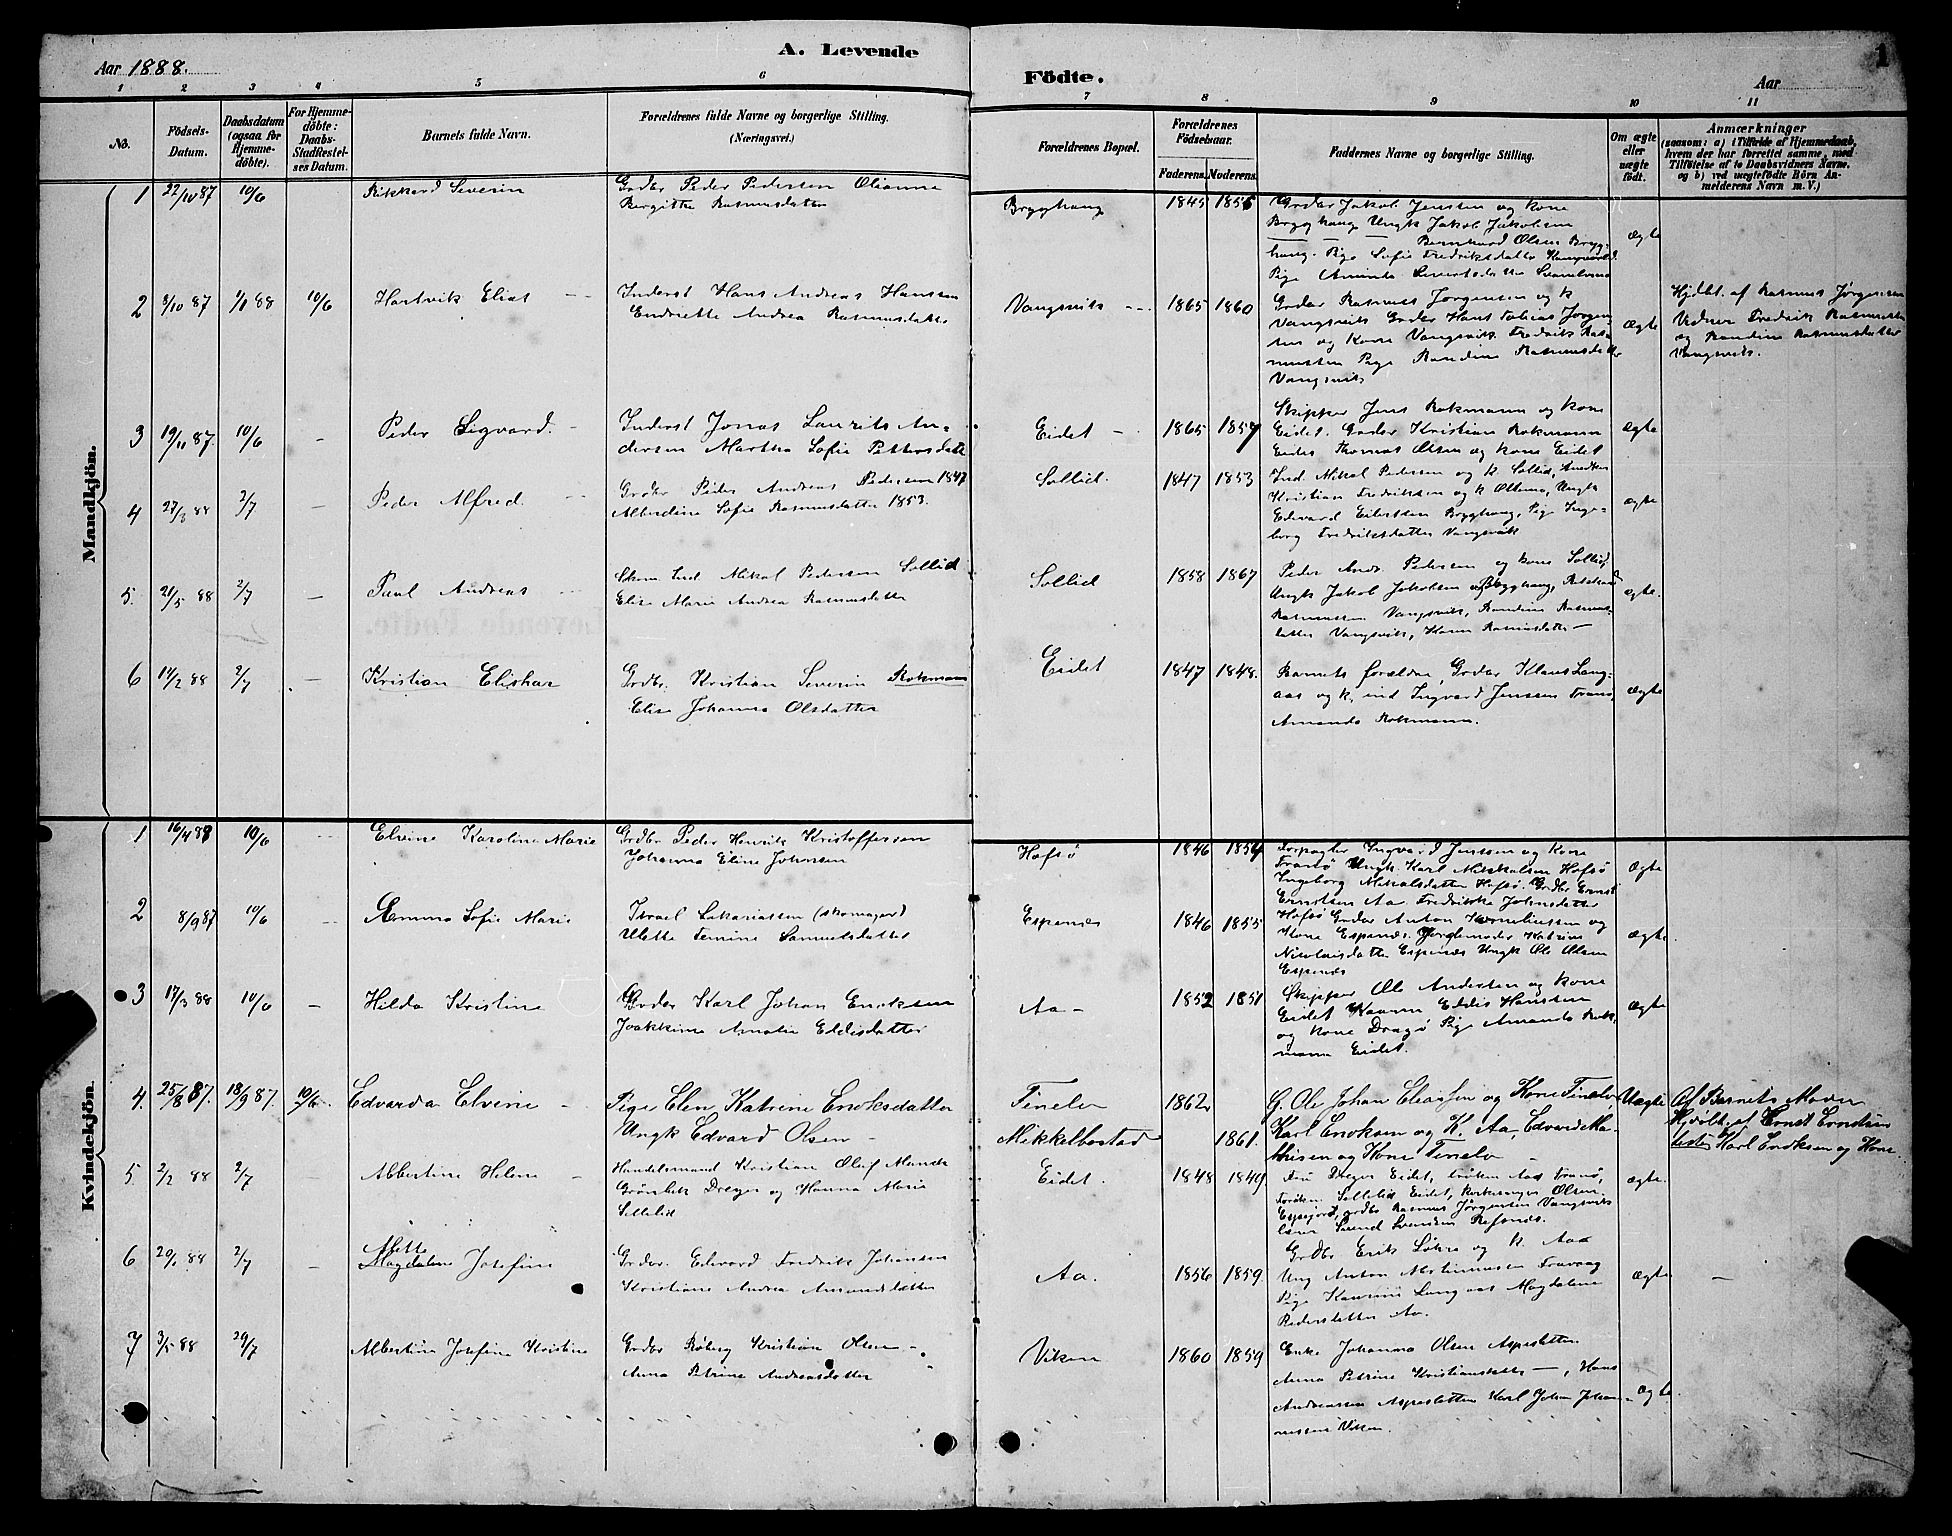 A. Levende
Födte.
1
Aar 1888.
Aar
1 2 3 4 5 6 7 8 9 10 11
No.
Födsels-Datum.
Daabsdatum (ogsaa for Hjemme-döbte).
For Hjemme-döbte: Daabs-Stadfæstel-ses Datum.
Barnets fulde Navn.
Forældrenes fulde Navne og borgerlige Stilling. (Næringsvei.)
Forældrenes Bopæl.
Forældrenes Födselsaar.
Faderens. Moderens.
Faddernes Navne og borgerlige Stilling.
Om ægte eller uægte født.
Anmærkninger
(saasom: a) i Tilfælde af Hjemmedaab, hvem der har forrettet samme, med Tilföielse af to Daabsvidners Navne, og b) ved uægtefödte Börn Anmelderens Navn m. V.)
Mandkjön.
1 22/10 87 10/6 Rikkard Severin
Grdbr Peder Pedersen Olianna
Bergitta Rasmusdatter
Brygghaug 1845 1855
Grdbr Jakob Jensen og Kone
Brygghaug Ungk Jakob Jakobsen
Bernhard Olsen Brygg-
haug. Pige Sofie Fredriksdatter
Ægte
2 3/10 87 1/1 88 10/6 Hartvik Elias
Inderst Hans Andreas Hansen
Endriette Andrea Rasmusdatter
Vangsvik 1865 1860
Grdbr Rasmus Jørgensen og K
Vangsvik Grdbr Hans Tobias Jørgen
sen og Kone Vangsvik. Fredrik Ras
mussen Pige Randine Rasmusdatter
Vangsvik
Ægte
Hjdbt. af Rasmus Jørgensen
Vidner Fredrik Rasmussen
og Randine Rasmusdatter
Vangsvik.
3 19/11 87. 10/6 – Peder Sigvard.
Inderst Jonas Laurits An-
dersen Martha Sofie Pettersdatt
Eidet 1865 1857
Skipper Jens Rokmann og Kone
Eidet. Grdbr Kristian Rokmann
Eidet Thomas Olsen og Kone Eidet
Ægte
4 27/3 88 2/7 – Peder Alfred.
Grdbr Peder Andreas Pedersen 1847
Alberdine Sofie Rasmusdatter 1853.
Sollid. 1847 1853
Ind. Mikal Pedersen og K Sollid,
Kristian Fredriksen og K
Edvard Eilertsen Brygghaug, Pige Inge-
borg Fredriksdatter Vangsvik
ægte
5. 21/5 88 2/7 – Paul Andreas
Ind Mikal Pedersen Sollid
Elise Marie Andrea Rasmusdatter
Sollid 1858 1867
Peder Andr. Pedersen og Kone Sollid,
Ungk Jakob Jakobsen Brygghaug,
Rasmussen Vangsvik, Randine Rasmus-
datter Vangsvik, Rasmusdatter –
ægte.
6 14/2 88 2/7 – Kristian Elishar
Grdbr. Kristian Severin Rokmann
Elise Johanna Olsdatter
Eidet 1847 1848.
Barnets forældre, Grdbr Klaus Lang-
aas og K, ind Ingvard Jenssen Tranø,
Amanda Rokmann.
ægte
Kvindekjön.
1 16/4 88 10/6 Elvine Karoline Marie
Grdbr Peder Henrik Kristoffersen
Johanna Eline Johnsen
Hofsø 1846 1854
Forpagter Ingvard Jenssen og Kone
Tranø Ungk. Karl Mikkalsen Hofsø
Ingeborg Mikalsdatter Hofsø. Grdbr Ernst
Erntsen Aa Fredrikke Johnsdatter
Hofsø
Ægte
2 8/9 87 10/6 Emma Sofie Marie
Israel Sakariassen (Skomager)
Uletta Samuelsdatter
Espenes 1846 1855
Grdbr Anton Korneliussen og
Kone Espenes. Jordemoder Katrine
Nicolaisdatter Espenes Ungk Ole Olsen
Espenes
Ægte
3 17/3 88 10/6 – Hilda Kristine
Grdbr Karl Johan Enoksen
Joakkime Amalie Eldisdatter
Aa – 1852 1851
Skipper Ole Andersen og Kone
Eidet Eldis Hansen
og Kone Dragø Pige Amanda Rok-
mann Eidet.
Ægte
4. 25/8 87. 18/9 87. 10/6. Edvarda Elvine –
Pige Elen Katrine Enoksdatter
Ungk Edvard Olsen –
Finelv 1862
Mikkelbostad 1861.
G. Ole Johan Eliassen og Kone Finelv
Karl Enoksen og K. Aa, Edvard Ma-
thisen og Kone Finelv –
Uægte
Af Barnets Moder
Hjdøbt. af Ernst Erntsen
Karl Enoksen og Kone.
5. 2/2 88 2/7 – Albertine Helene –
Handelsmand Kristian Oluf Munck
Grønbek Dreyer og Hanna Marie
Sellelid
Eidet. 1848 1849
Fru Dreyer Eidet, frøken Aas Tranø,
Frøken Sellelid Eidet, Kirkesanger Olsen
Espejord, grdbr Rasmus Jørgensen Vangsvik
lærer Svend Svendsen Refsnes.
ægte.
6 20/1 88 2/7 – Mette
Magdalene Josefine
Grdbr. Edvard Fredrik Johansen
Kristiane Andrea Amundsdatter
Aa. 1856 1859
Grdbr Erik Løkse og K. Aaa
Ung Anton Mortinussen Travaag
Pige Langaas Magdalena
Pedersdatter Aa.
ægte –
7 3/5 88 29/7 Albertine Josefine Kristine
Grdbr Røberg Kristian Olsen –
Anna Petrine Andreasdatter
Viken 1860 1859
Enke Johanna Olsen Aspesletten
Anna Petrine Kristiansdatter –, Hans
Andreassen Aspesletten Karl Johan Johan-
nessen Viken.
ægte.